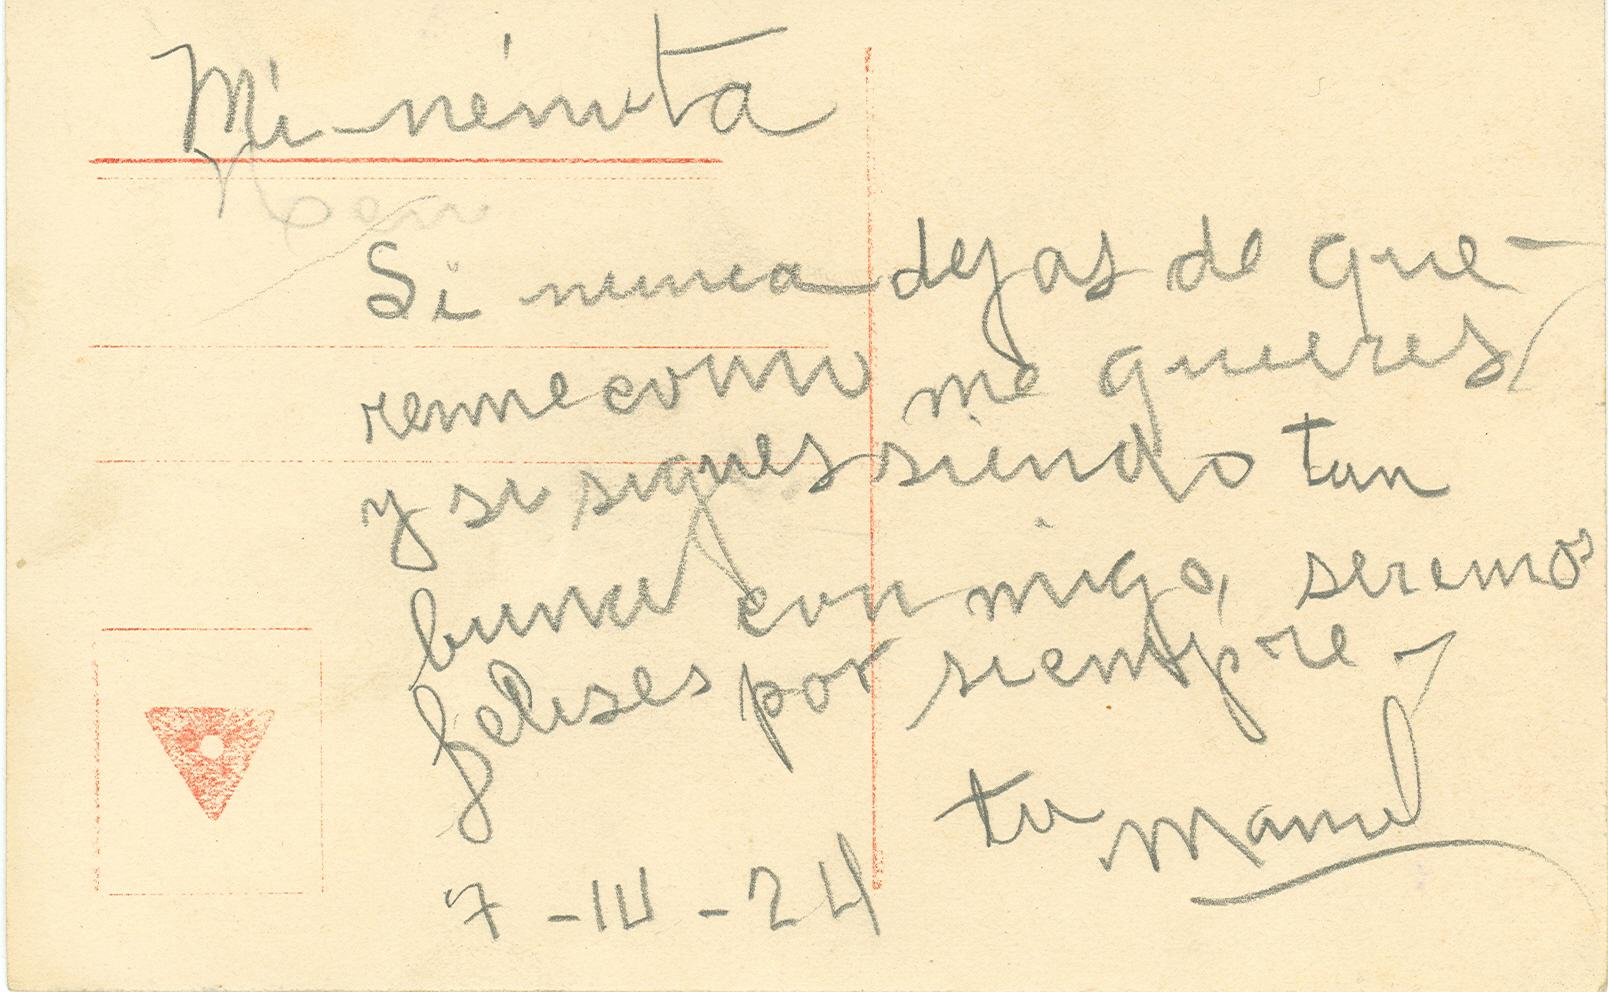 Mi nenita
Si nunca dejas de que-
rerme como me quieres
y si sigues siendo tan
buena conmigo, seremos
felises por siempre -
tu Manuel
7 - III - 24